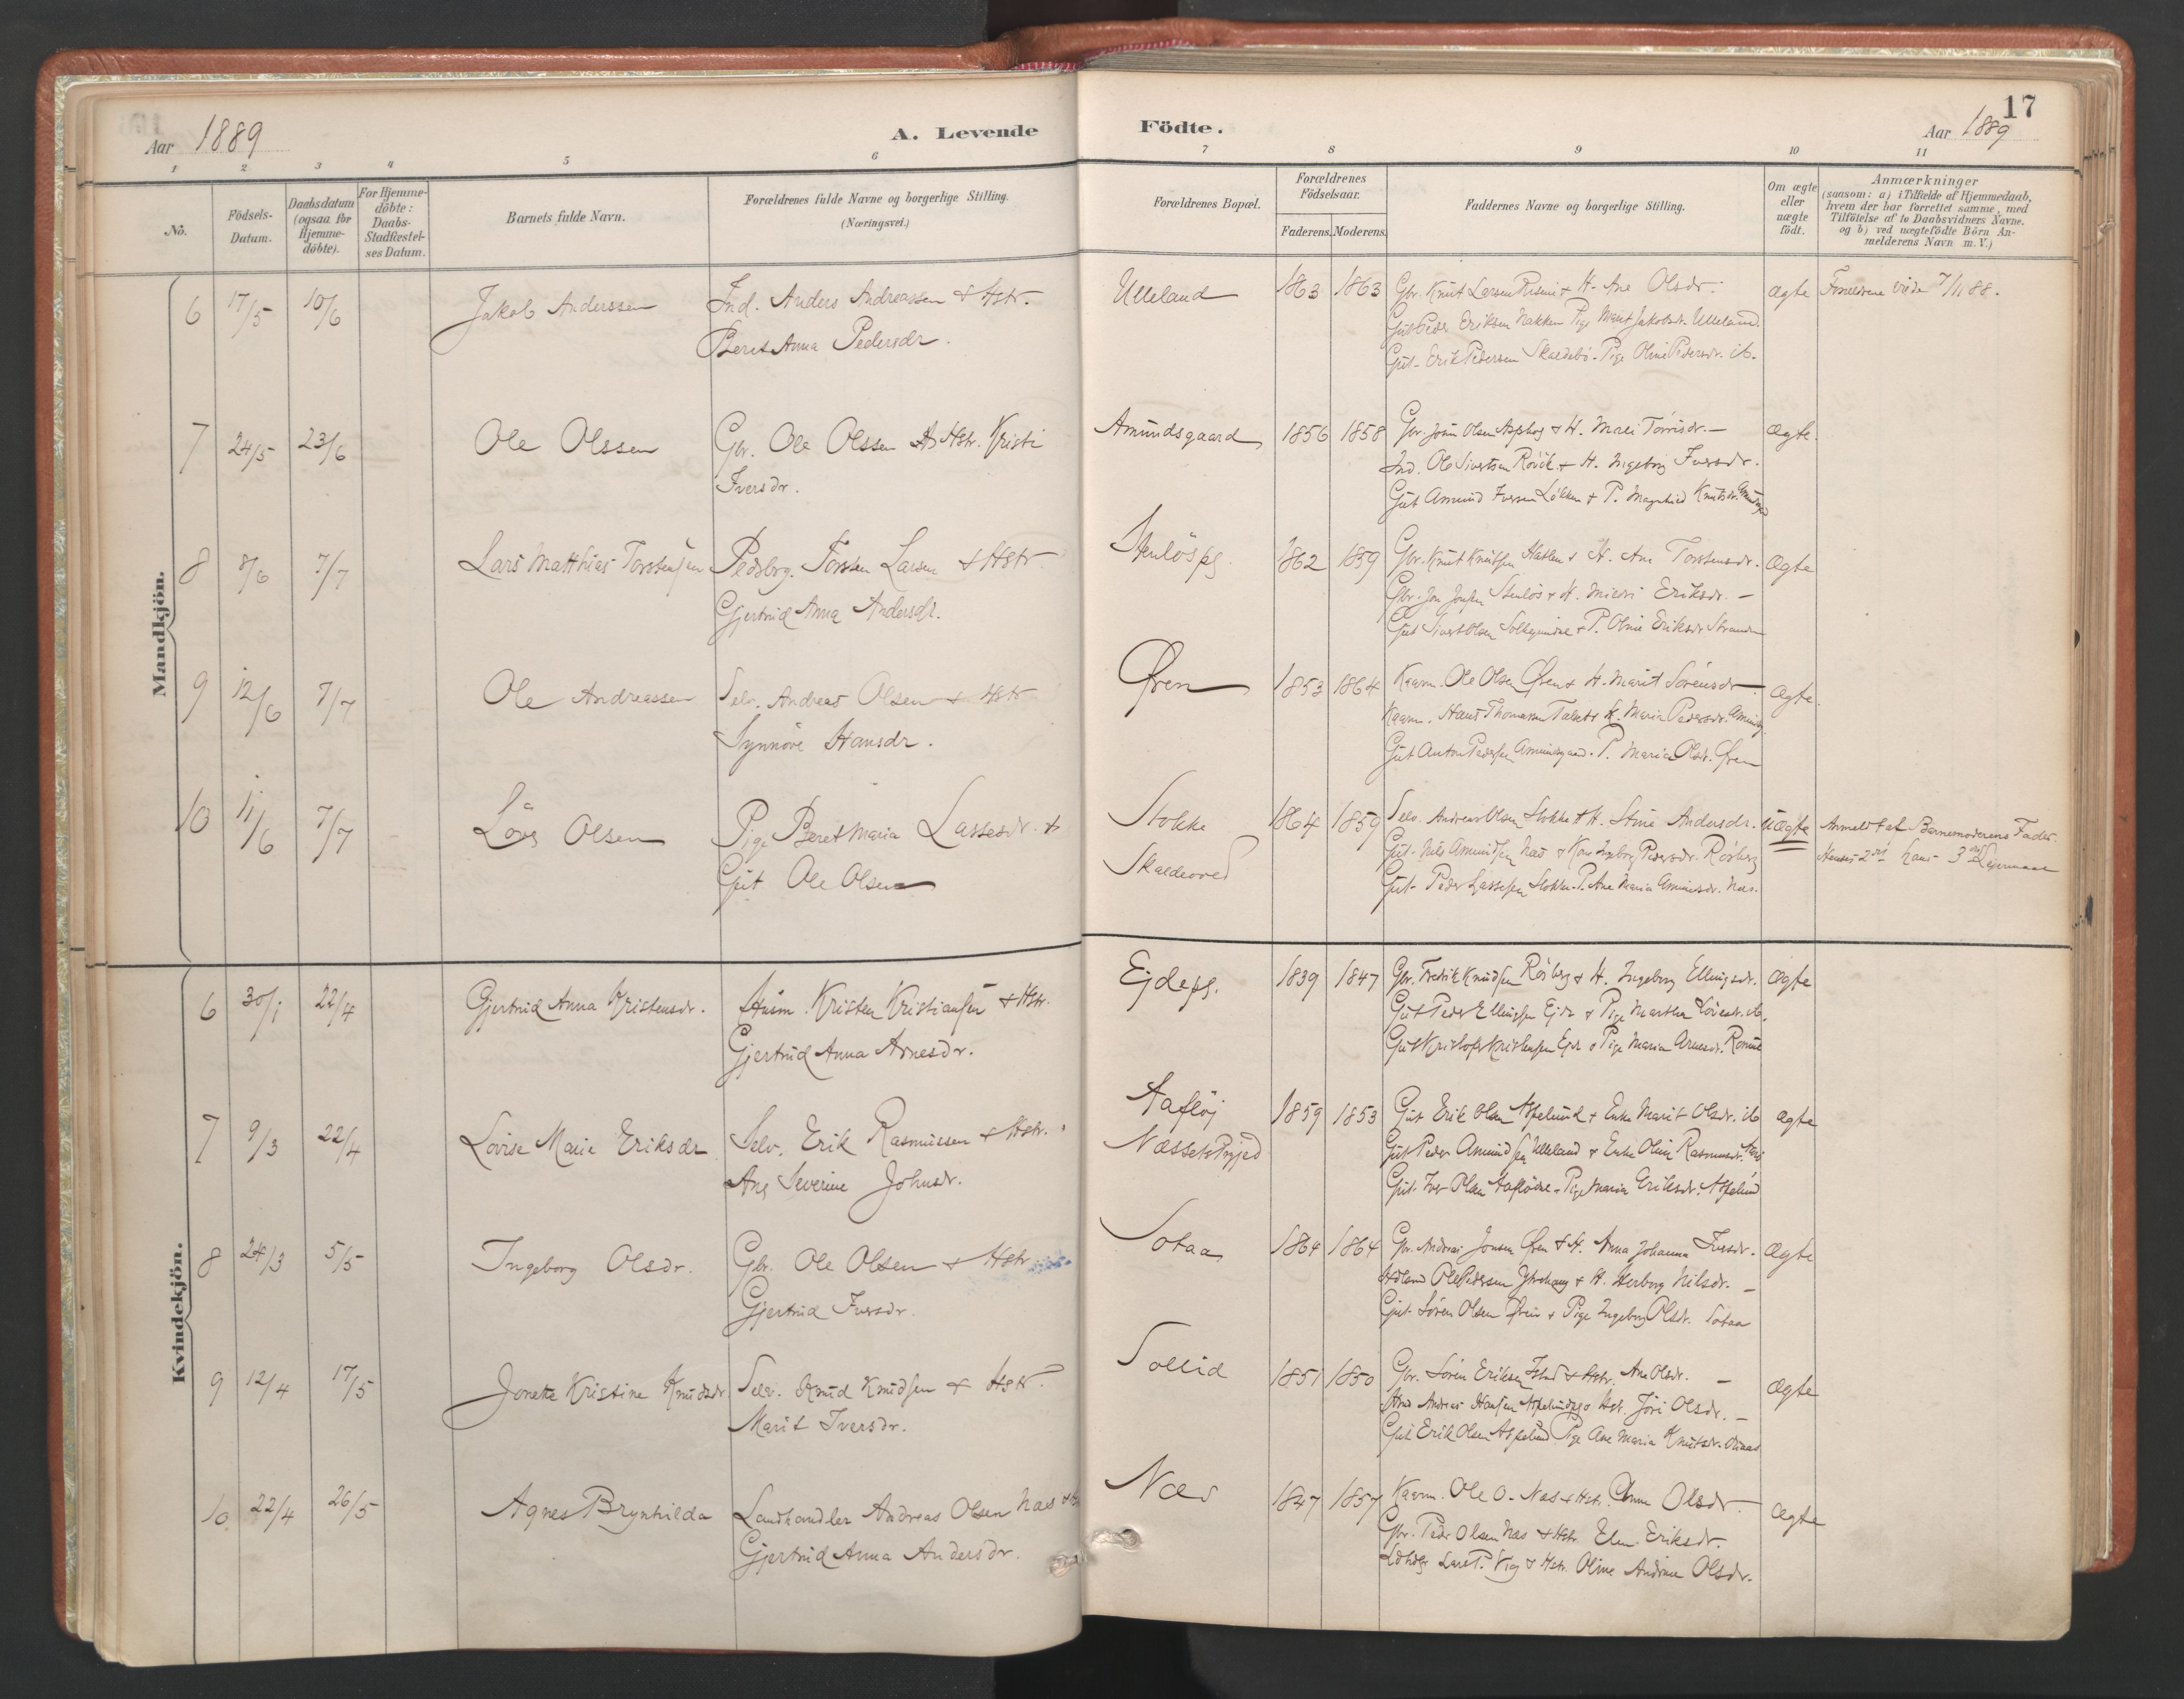 Aar 1889
A. Levende
Födte.
17
Aar 1889
1 2 3 4 5 6 7 8 9 10 11
No.
Födsels-Datum.
Daabsdatum (ogsaa for Hjemme-döbte).
For Hjemme-döbte: Daabs-Stadfæstel-ses Datum.
Barnets fulde Navn.
Forældrenes fulde Navne og borgerlige Stilling.
(Næringsvei.)
Forældrenes Bopæl.
Forældrenes Födselsaar.
Faderens. Moderens.
Faddernes Navne og borgerlige Stilling.
Om ægte eller uægte födt.
Anmærkninger
(saasom: a) i Tilfælde af Hjemmedaab,
hvem der har forrettet samme, med
Tilföielse af to Daabsvidners Navne.
og b) ved uægtefödte Börn An-
melderens Navn m. V.)
Mandkjön.
6 17/5 10/6 Jakob Anderssen Ind. Anders Andreassen & Hstr. Ulleland 1863 1863 Gbr. Knut Larsen & H. Ane Olsdr. ægte Forældrene viede 7/11 88.
Beret Anna Pedersdr. Gut Peder Eriksen Nakken Pige Marit Jakobsdr. Ulleland.
Gut Erik Pedersen Skaldebö. Pige Oline Pedersdr. ib.
7 24/5 23/6 Ole Olssen Gbr. Ole Olssen & Hstr. Kristi Amundsgaard 1856 1858 Gbr. John Olsen & H. Mali Torrisdr. — ægte.
Iversdr. Ind. Ole Sivertsen Rövik & H. Ingeborg Iversdr.
Gut Amund Iversen Lökken & P. Magnhild Knutsdr.
8 8/6 7/7 Lars Matthias Torstensen Torsten Larsen & Hstr. Stenlöspl. 1862 1859 Gbr. Knut Knutsen & H. Ane Torstensdr. ægte
Gjertrud Anna Andersdr. Gbr. Jon Jonsen Stenlös & H. Mildri Eriksdr. —
Gut Sivert Olsen & P. Oline Eriksdr. Stranden
9 12/6 7/7 Ole Andreassen Selv. Andreas Olsen & Hstr. Ören 1853 1864 Kaarm. Ole Olsen Ören & H. Marit Sörensdr. — ægte.
Synnöve Hansdr. Kaarm. Hans Thomassen & H. Maria Pedersdr.
Gut Anton Pedersen Amundsgaard. P. Maria Olsdr. Ören
10 11/6 7/7 Lars Olsen Pige Beret Maria Lassesdr. & Stokke 1864 1859 Selv. Andreas Olsen Stokke & H. Stine Andersdr. uægte Anmeldt af Barnemoderens Fader.
Gut Ole Olsen Skaldeored Gut Nils Amundsen Næs & Ingeborg Pedersdr. Rösberg Hendes 2det hans 3die Leiermaal
Gut Peder Lassesen Stokke. P. Ane Maria Amundsdr. Næs.
Kvindekjön.
6 30/1 22/4 Gjertrud Anna Kristensdr. Husm. Kristen Kristiansen & Hstr. Ejdepl. 1839 1847 Gbr. Fredrik Knudsen Rösberg & H. Ingeborg Ellingsdr. ægte
Gjertrud Anna Arnesdr. Gut Peder Ellingsen Ejde & Pige Martha ib.
Gut Kristofer Kristensen Ejde & Pige Maria Arnesdr.
7 9/3 22/4 Lovise Marie Eriksdr. Selv. Erik Rasmussen & Hstr. Aaflöj 1859 1853 Gut Erik Olsen Aspelund & Enke Marit Olsdr. ib ægte
Ane Severine Johnsdr. Næssets Prgjd Gut Peder Amundsen Ulleland & Enke Oline Rasmusdr.
Gut Iver Olsen & Pige Maria Eriksdr. Aspelund
8 24/3 5/5 Ingeborg Olsdr. Gbr. Ole Olsen & Hstr. Sotaa 1864 1864 Gbr. Andreas Jonsen Ören & H. Anna Johanna Iversdr. ægte
Gjertrud Iversdr. Ole Pedersen & H. Herborg Nilsdr. —
Gut Sören Olsen Ören & Pige Ingeborg Olsdr. Sotaa
9 12/4 17/5 Jonetta Kristine Knudsdr. Selv. Knud Knudsen & Hstr. Sollid 1851 1850 Gbr. Sören Eriksen & Hstr. Ane Olsdr. — ægte
Marit Iversdr. Andreas Hansen & Hstr. Jöri Olsdr. —
Gut Erik Olsen Aspelund Pige Ane Maria Knutsdr.
10 22/4 26/5 Agnes Brynhilda Landhandler Andreas Olsen Næs & H. Næs 1847 1857 Kaarm. Ole O. Næs & Hstr. Anne Olsdr. — ægte
Gjertrud Anna Andersdr. Gbr. Peder Olsen Næs & Hstr. Elen Eriksdr.
Ldhdlr Lars P. Vig & Hstr. Oline Andrine Olsdr.